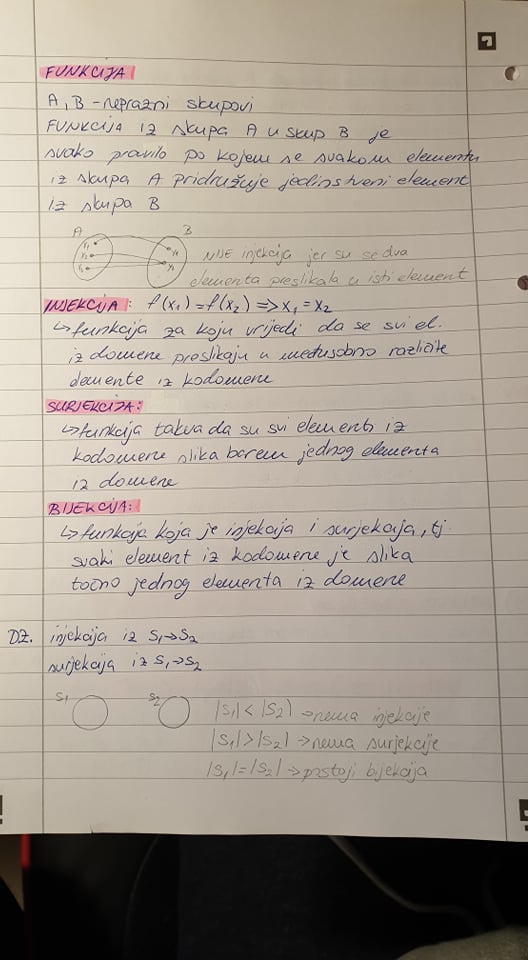 FUNKCIJA
A, B - neprazni skupovi
FUNKCIJA iz skupa A u skup B je
svako pravilo po kojem se svakom elementu
iz skupa A pridružuje jedinstveni element
iz skupa B
A B
NIJE injekcija jer su se dva
elementa preslikala u isti element
INJEKCIJA: f(x₁) = f(x₂) => x₁ = x₂
↳ funkcija za koju vrijedi da se svi el.
iz domene preslikaju u međusobno različite
elemente iz kodomene
SURJEKCIJA:
↳ funkcija takva da su svi elementi iz
kodomene slika barem jednog elementa
iz domene
BIJEKCIJA:
↳ funkcija koja je injekcija i surjekcija, tj.
svaki element iz kodomene je slika
točno jednog elementa iz domene
DZ. injekcija iz S₁→S₂
surjekcija iz S₁→S₂
S₁ S₂ |S₁| < |S₂| → nema injekcije
|S₁| > |S₂| → nema surjekcije
|S₁| = |S₂| → postoji bijekcija